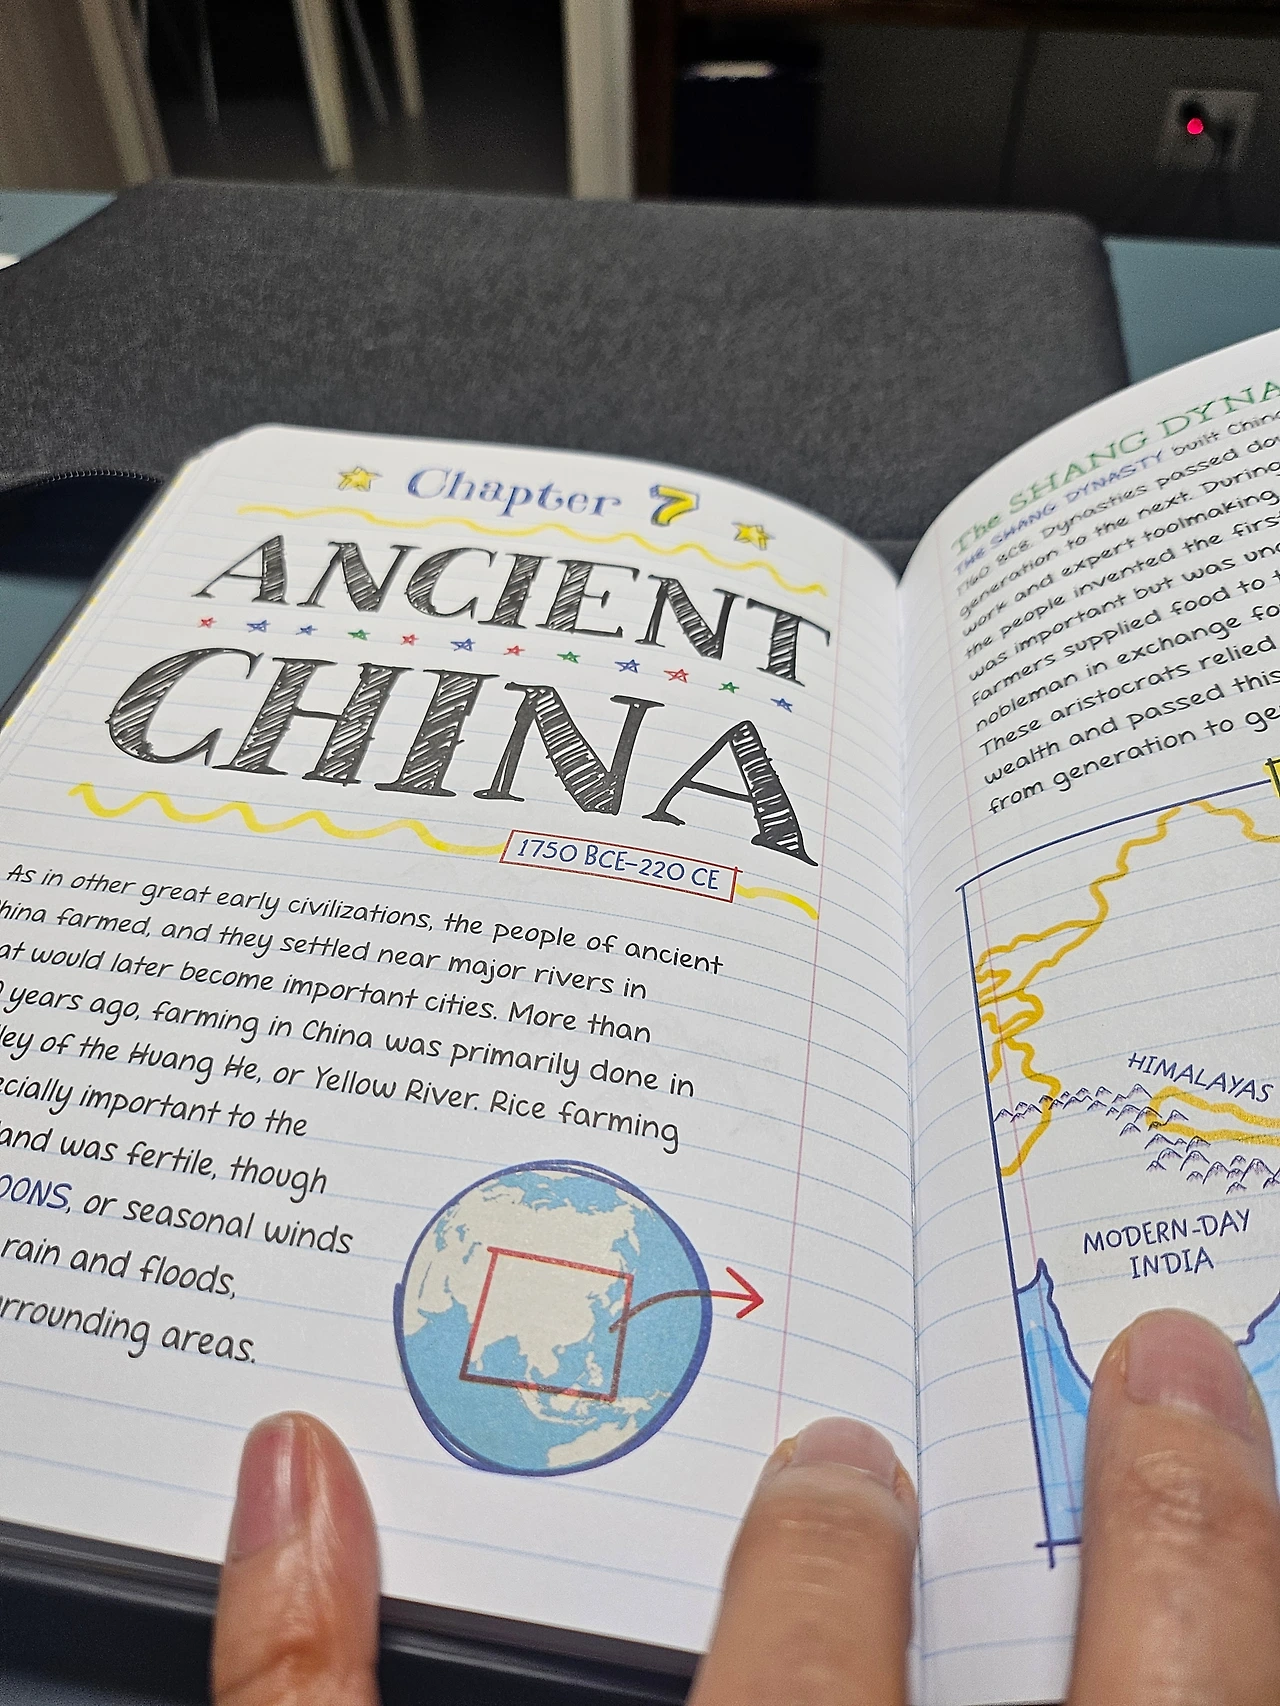 Chapter 7
ANCIENT
CHINA
1750 BCE–220 CE
As in other great early civilizations, the people of ancient
farmed, and they settled near major rivers in
would later become important cities. More than
years ago, farming in China was primarily done in
of the Huang He, or Yellow River. Rice farming
important to the
was fertile, though
or seasonal winds
rain and floods,
areas.
The SHANG
THE SHANG DYNASTY built
1760 BCE. Dynasties passed
generation to the next. During
work and expert toolmaking
the people invented the first
was important but was
Farmers supplied food to
nobleman in exchange
These aristocrats relied
wealth and passed this
from generation to
HIMALAYAS
MODERN-DAY
INDIA